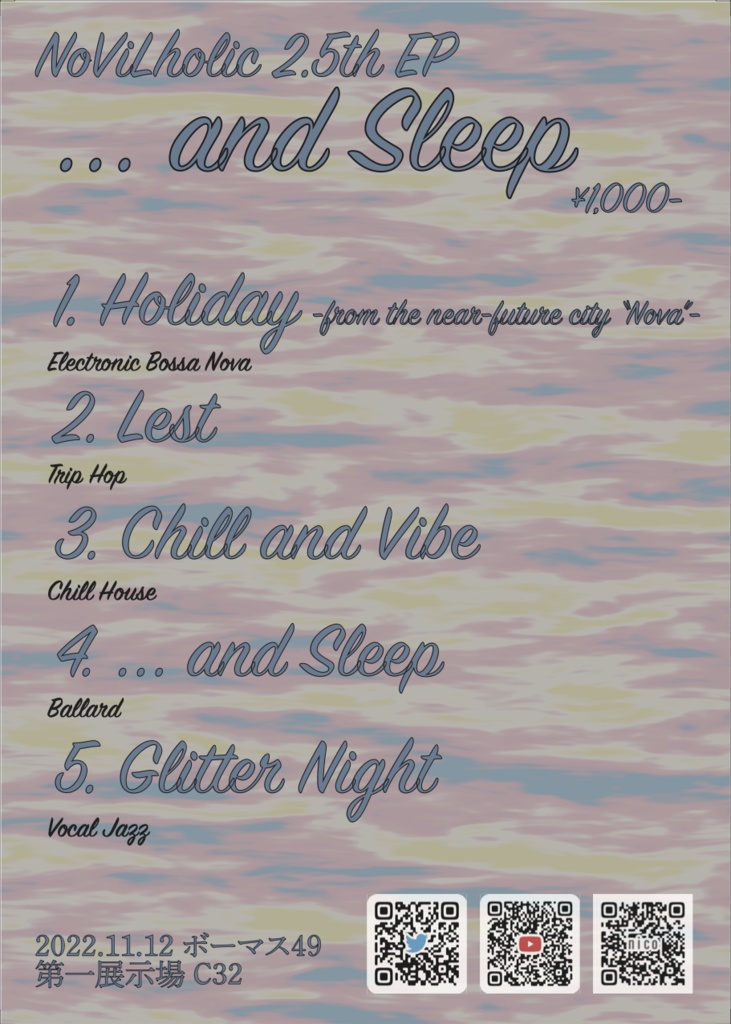 NoViLholic 2.5th EP
... and Sleep
¥1,000-
1. Holiday -from the near-future city "Nova"-
Electronic Bossa Nova
2. Lest
Trip Hop
3. Chill and Vibe
Chill House
4. ... and Sleep
Ballard
5. Glitter Night
Vocal Jazz
2022.11.12 ボーマス49
第一展示場 C32
nico